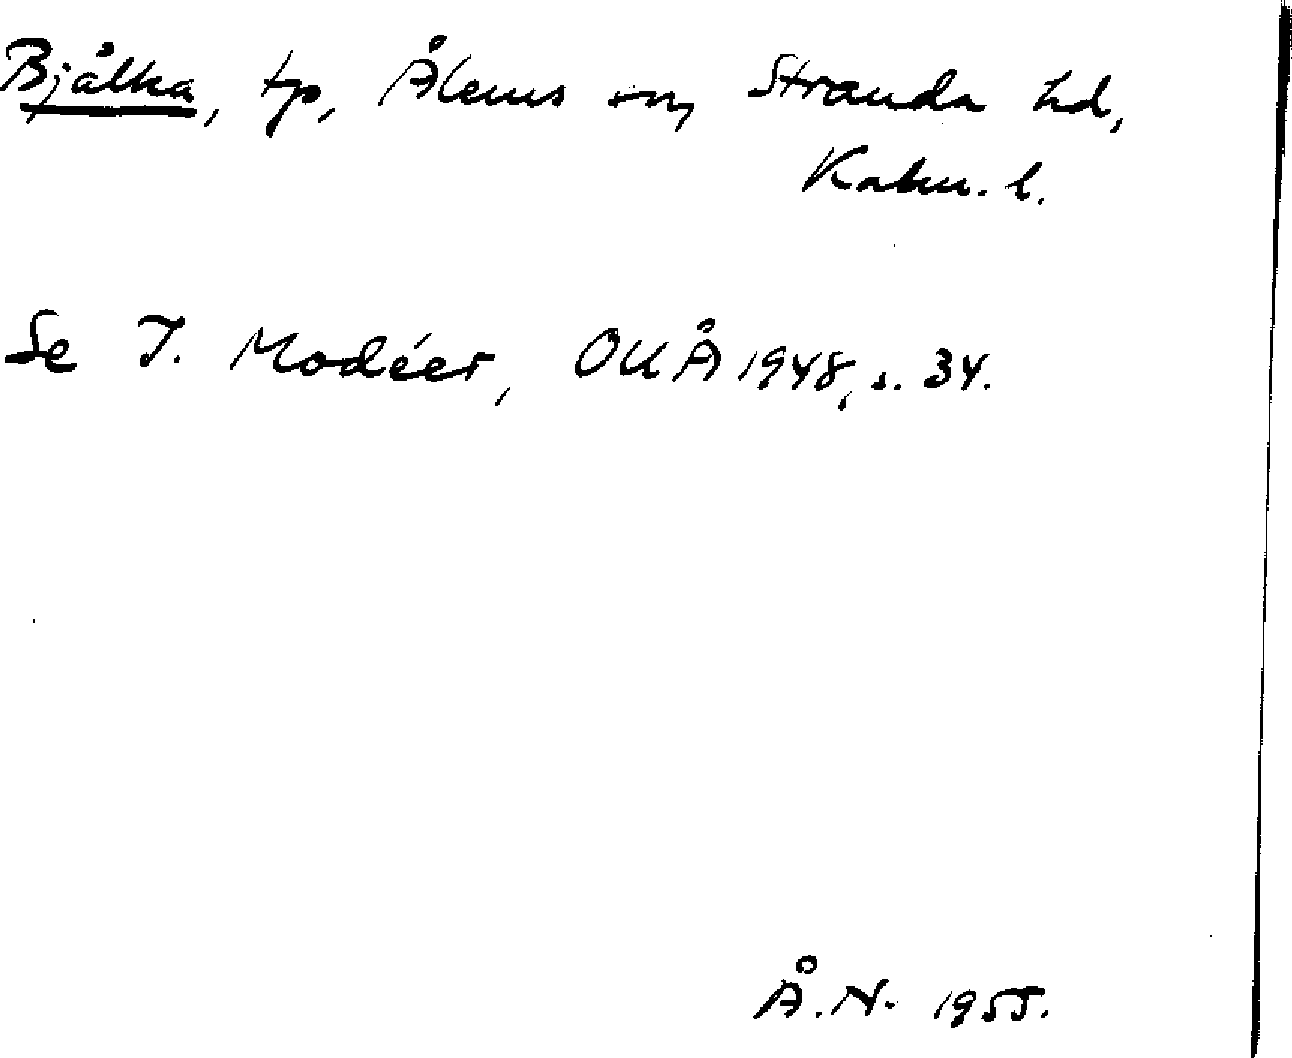 Bjålka, tp, Ålems sn, Stranda hd,
Kalm. l.
Se I. Modéer, OUÅ 1948, s. 34.
Å. N. 1955.